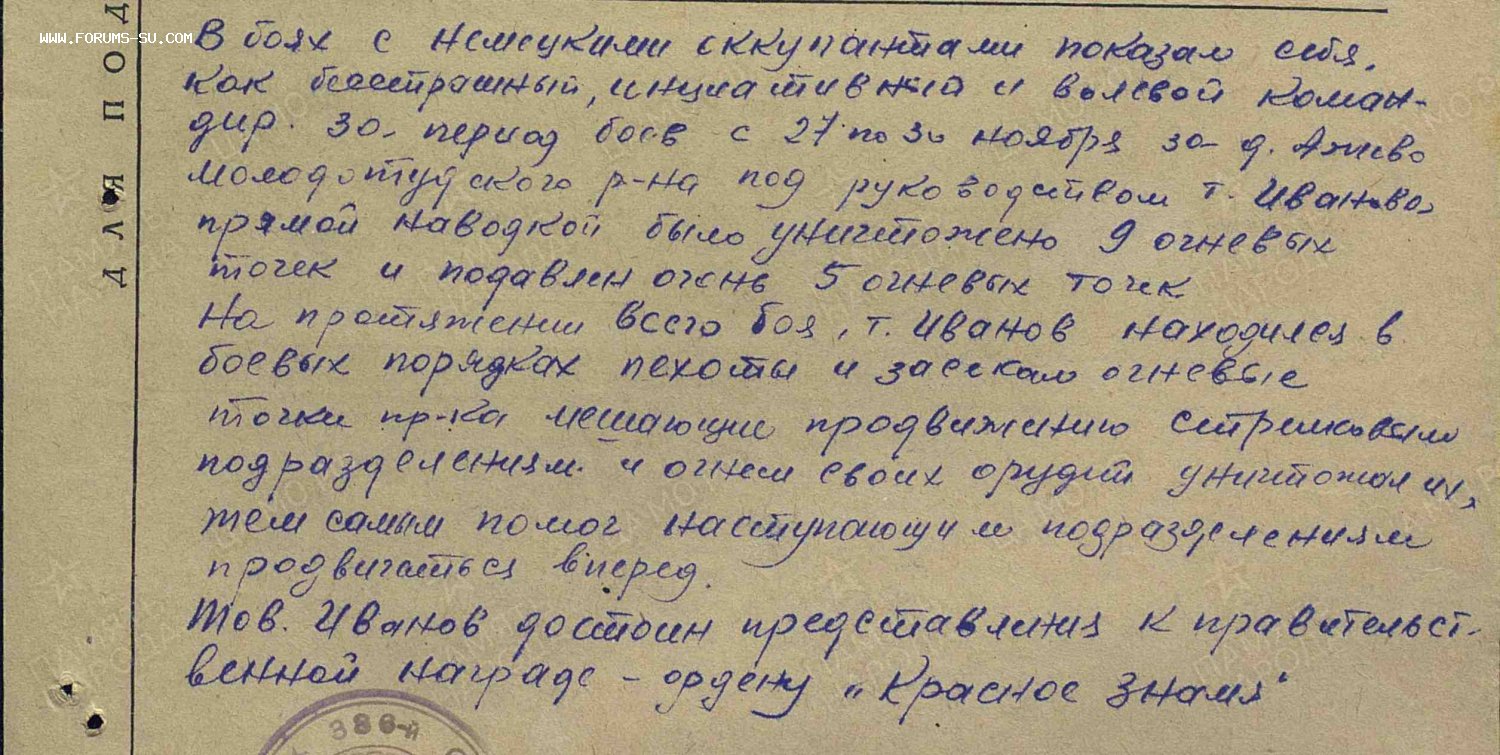 WWW.FORUMS-SU.COM
ДЛЯ ПОД
В боях с немецкими оккупантами показал себя,
как бесстрашный, инциативный и волевой коман-
дир. За период боев с 27 по 30 ноября за д. Ажево
Молодотудского р-на под руководством т. Иванова
прямой наводкой было уничтожено 9 огневых
точек и подавлен огонь 5 огневых точек
На протяжении всего боя, т. Иванов находился в
боевых порядках пехоты и засекал огневые
точки пр-ка мешающие продвижению стрелковым
подразделениям и огнем своих орудий уничтожал их,
тем самым помог наступающим подразделениям
продвигаться вперед.
Тов. Иванов достоин представления к правительст-
венной награде – ордену „Красное Знамя"
386-й